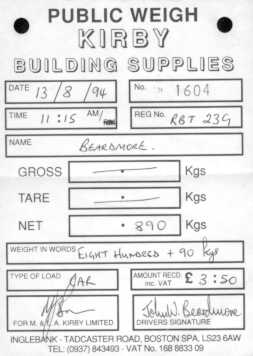 PUBLIC WEIGH
KIRBY
BUILDING SUPPLIES
DATE 13/8/94 No. 1604
TIME 11:15 AM/ REG No. RBT 23G
NAME BEARDMORE.
GROSS · Kgs
TARE · Kgs
NET · 890 Kgs
WEIGHT IN WORDS EIGHT HUNDRED + 90 kgs
TYPE OF LOAD CAR AMOUNT RECD inc. VAT £ 3:50
John W. Beardmore
FOR M. & A. KIRBY LIMITED DRIVERS SIGNATURE
INGLEBANK - TADCASTER ROAD, BOSTON SPA. LS23 6AW
TEL: (0937) 843493 - VAT No. 168 8833 09